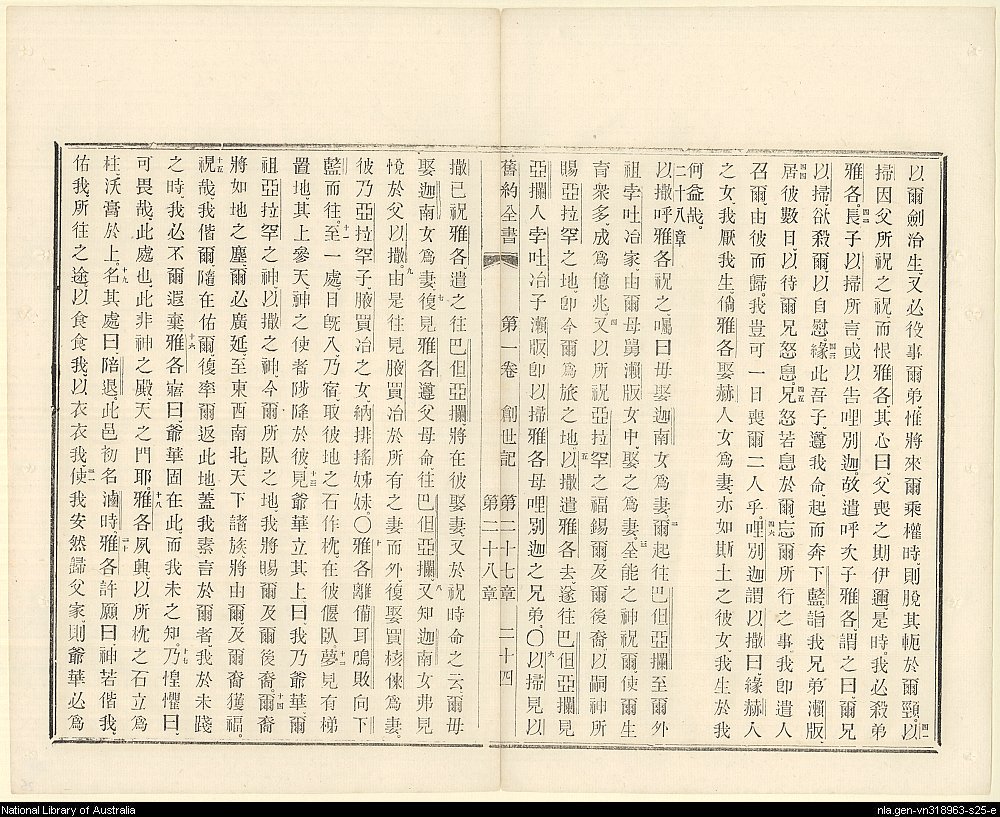 以爾劍治生、又必役事爾弟、惟將來爾乘權時、則脫其軛於爾頸。四一以
掃因父所祝之祝、而恨雅各、其心曰、父喪之期伊邇、是時、我必殺弟
雅各。四二長子以掃所言、或以告哩別迦、故遣呼次子雅各、謂之曰、爾兄
以掃、欲殺爾以自慰、四三緣此吾子、遵我命、起而奔下藍、詣我兄弟瀨版、
四四居彼數日、以待爾兄怒息、四五兄怒若息於爾、忘爾所行之事、我卽遣人
召爾、由彼而歸。我豈可一日喪爾二人乎。四六哩別迦謂以撒曰、緣赫人
之女、我厭我生、倘雅各娶赫人女爲妻、亦如斯土之彼女、我生於我
何益哉。
二十八章
以撒呼雅各、祝之囑曰、毋娶迦南女爲妻、二爾起往巴但亞攔、至爾外
祖孛吐冶家、由爾母舅瀨版女中、娶之爲妻、三全能之神祝爾、使爾生
育衆多、成爲億兆、四又以所祝亞拉罕之福、錫爾及爾後裔、以嗣神所
賜亞拉罕之地、卽今爾爲旅之地、五以撒遣雅各去、遂往巴但亞攔、見
亞攔人孛吐冶子瀨版、卽以掃雅各母哩別迦之兄弟。〇六以掃見以
舊約全書 第一卷 創世記 第二十七章 第二十八章 二十四
撒已祝雅各、遣之往巴但亞攔、將在彼娶妻、又於祝時命之云、爾毋
娶迦南女爲妻、七復見雅各遵父母命、往巴但亞攔、八又知迦南女弗見
悅於父以撒、九由是往見腋買冶、於所有之妻而外、復娶買核倈爲妻、
彼乃亞拉罕子腋買冶之女、納排搖姊妹。〇十雅各離備耳鴟敗、向下
藍而往。十一至一處、日旣入、乃宿、取彼地之石作枕、在彼偃臥、十二夢見有梯
置地、其上參天、神之使者陟降於彼、十三見爺華立其上曰、我乃爺華、爾
祖亞拉罕之神、以撒之神、今爾所臥之地、我將賜爾及爾後裔。十四爾裔
將如地之塵、爾必廣延、至東西南北、天下諸族、將由爾及爾裔獲福。
十五祝哉、我偕爾、隨在佑爾、復率爾返此地、蓋我素言於爾者、我於未踐
之時、我必不爾遐棄、十六雅各寤曰、爺華固在此、而我未之知。十七乃惶懼曰、
可畏哉、此處也、此非神之殿、天之門耶、十八雅各夙興、以所枕之石立爲
柱、沃膏於上。十九名其處曰陪退、此邑初名滷時、二十雅各許願曰、神若偕我、
佑我所往之途、以食食我、以衣衣我、二一使我安然歸父家、則爺華必爲
National Library of Australia
nla.gen-vn318963-s25-e